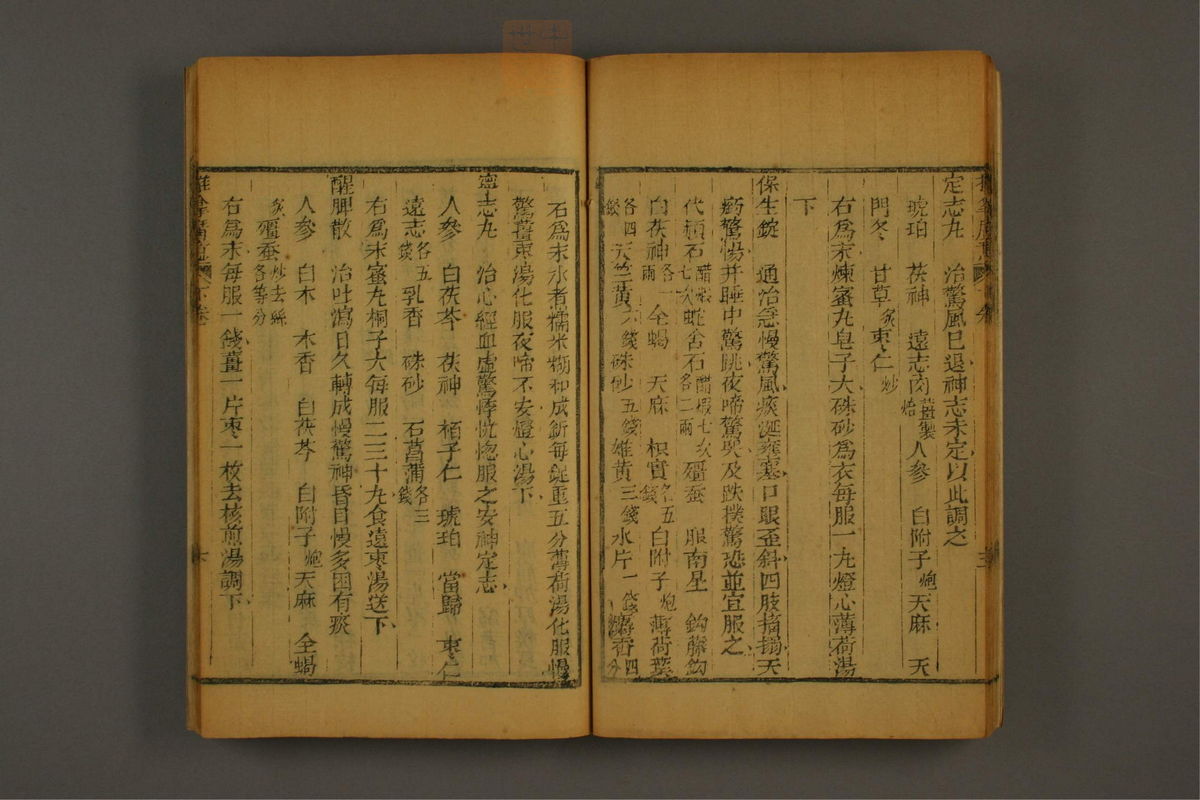 定志丸　治驚風已退神志未定以此調之
琥珀　茯神　遠志肉薑製焙人參　白附子炮天麻　天
門冬　甘草炙棗仁炒
右爲末煉蜜丸皂子大硃砂爲衣每服一丸燈心薄荷湯
下
保生錠　通治急慢驚風痰涎雍塞口眼歪斜四肢搐搦天
瘹驚惕并睡中驚跳夜啼驚哭及跌撲驚恐並宜服之
代赭石醋煅七次蛇含石醋煅七次各二兩殭蚕　胆南星　鈎藤鈎
白茯神各一兩　全蝎　天麻　枳實各五錢　白附子炮　薄荷葉
各四錢　天竺黃六錢硃砂五錢雄黃三錢水片一錢麝香四分
石爲末水煮糯米糊和成錠每錠重五分薄荷湯化服慢
驚薑棗湯化服夜啼不安燈心湯下
寧志丸　治心經血虛驚悸恍惚服之安神定志
人參　白茯苓　茯神　栢子仁　琥珀　當歸　棗仁
遠志各五錢　乳香　硃砂　石菖蒲各三錢
右爲末蜜丸桐子大每服二三十丸食遠棗湯送下
醒脾散　治吐瀉日久轉成慢驚神昏目慢多困有痰
人參　白木　木香　白茯苓　白附子炮天麻　全蝎
炙殭蚕炒去絲各等分
右爲末每服一錢薑一片棗一枚去核煎湯調下